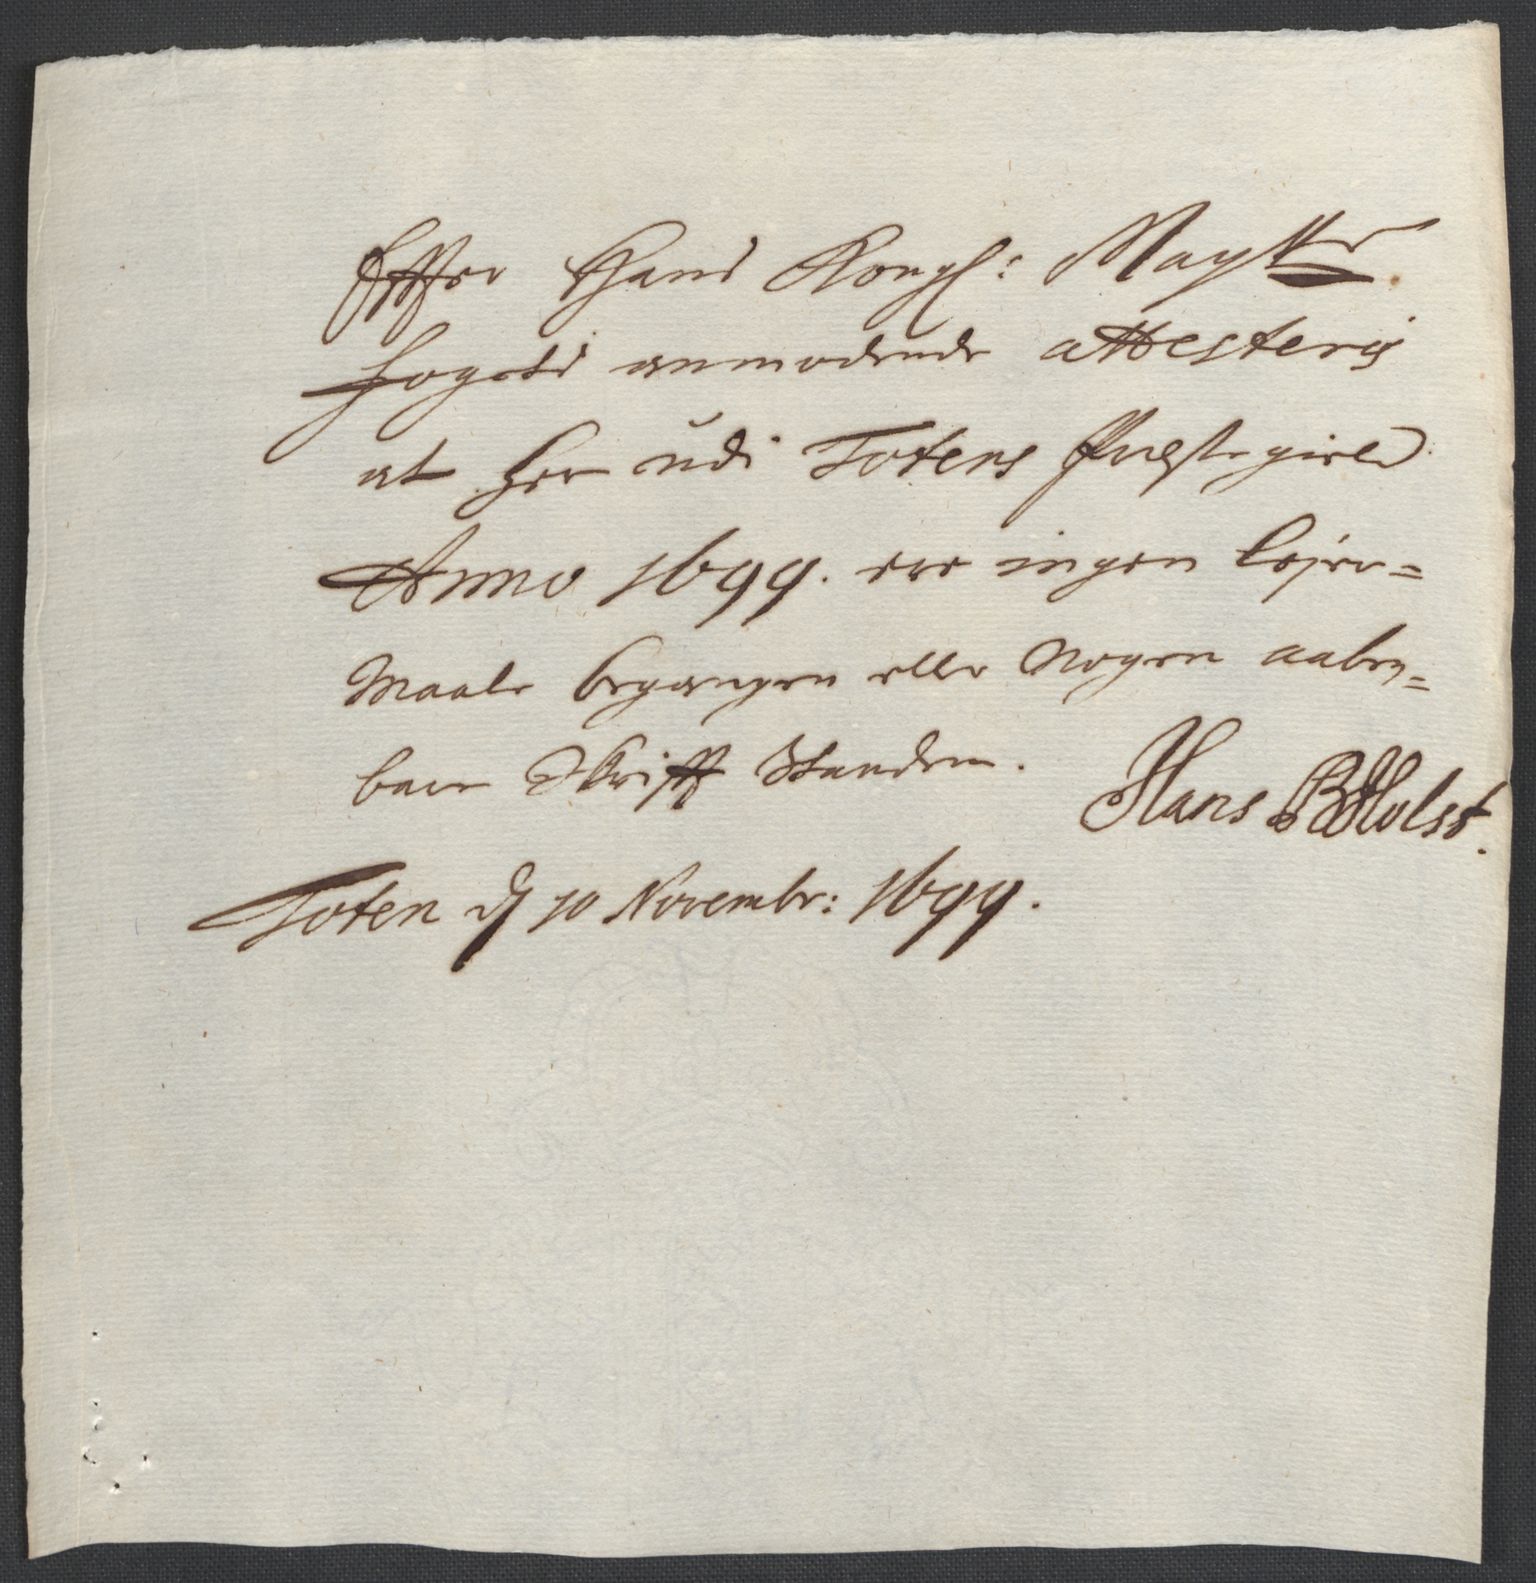 Effter Hans Kongl: Maytts
fogets anmodende attesteris
at her udi Totens Præstegield
Anno 1699. ere ingen lejer=
Maale begangen eller Nogen aaben=
bare Skrifft Standen.
Hans B Holst.
Toten d 10 Novembr: 1699.